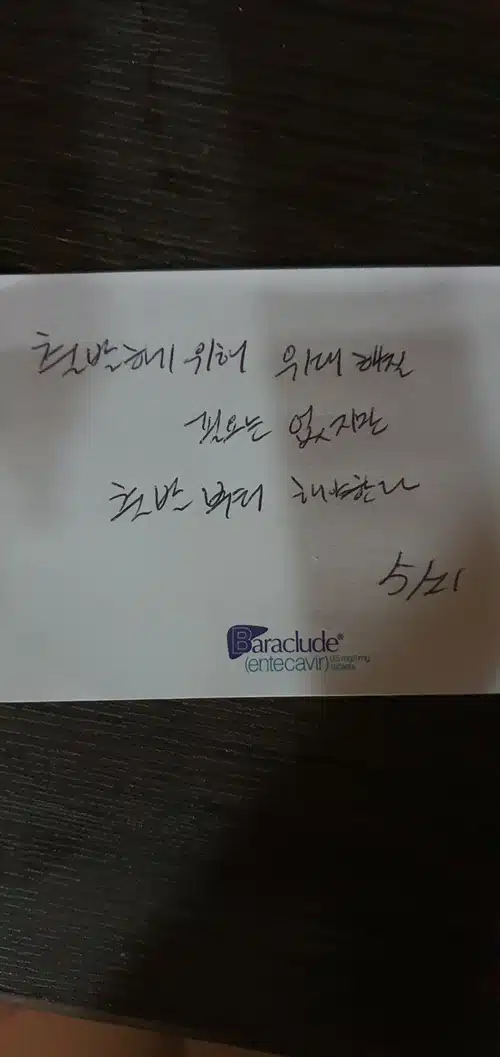 출발하기 위해 위대 해질
필요는 없지만
출발 부터 해야한다
5/21
Baraclude®
(entecavir) 0.5 mg/1 mg
tablets